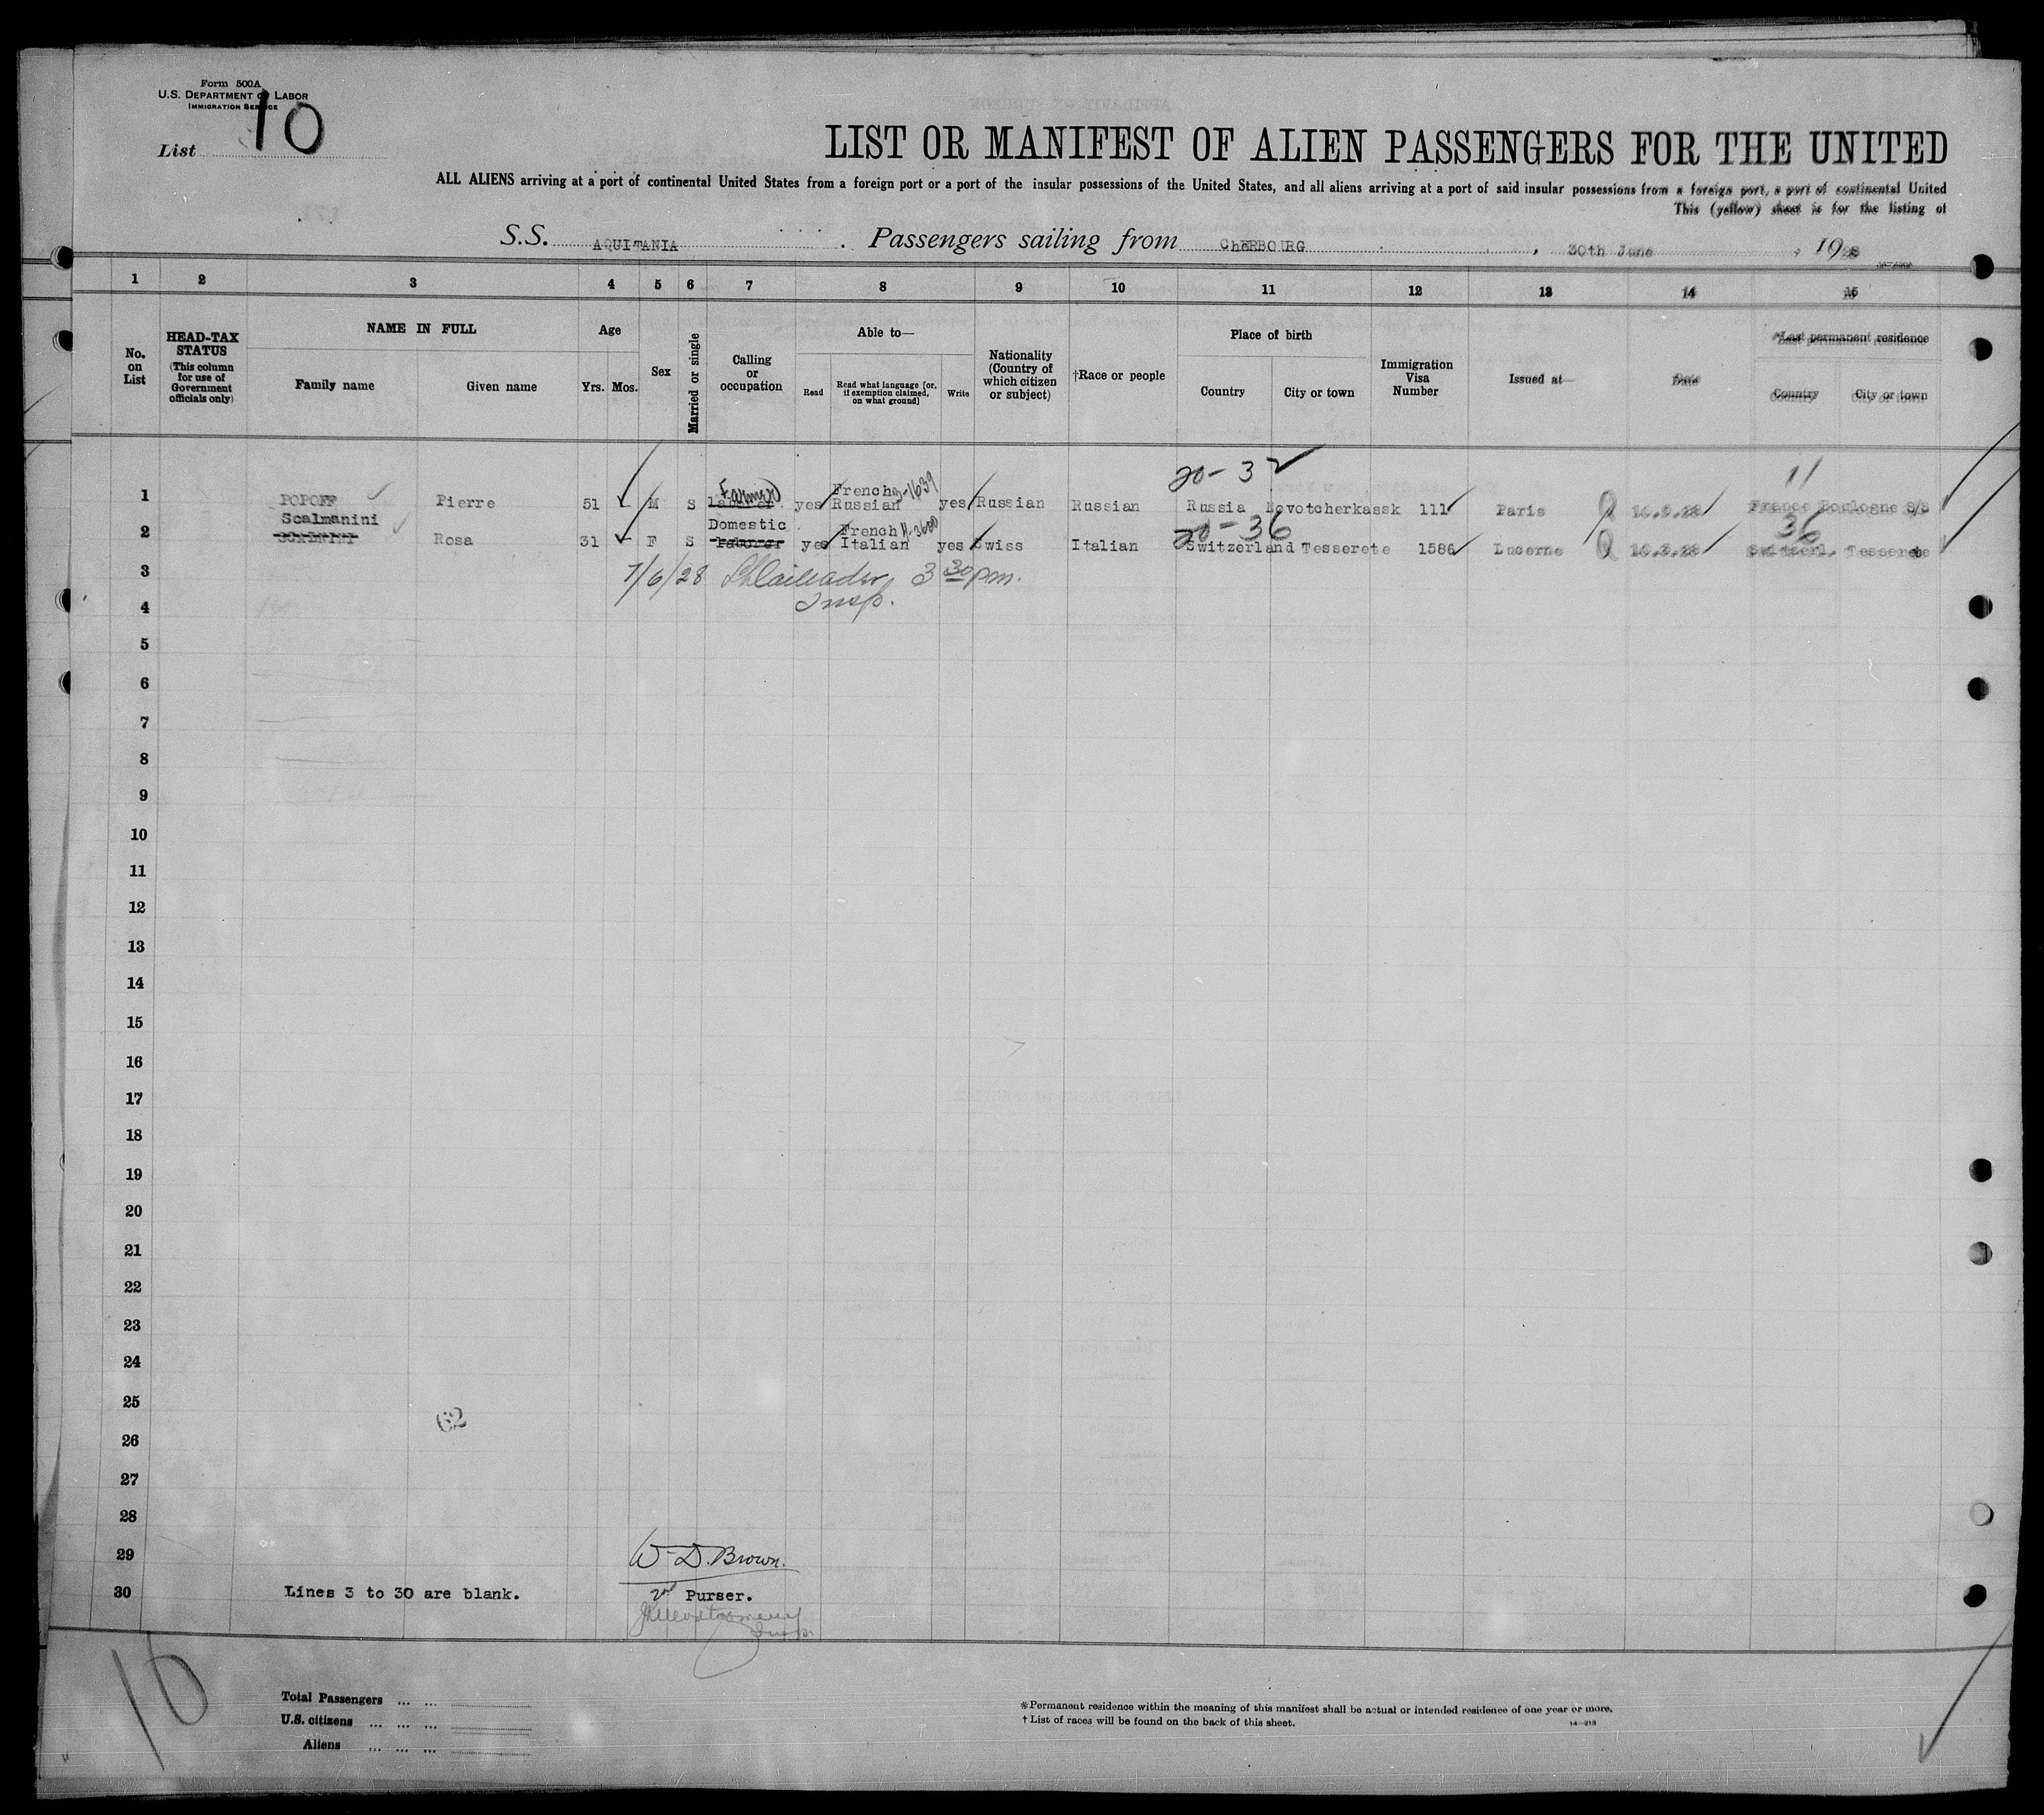 Form 500A
U.S. DEPARTMENT OF LABOR
IMMIGRATION SERVICE
List 10
LIST OR MANIFEST OF ALIEN PASSENGERS FOR THE UNITED
ALL ALIENS arriving at a port of continental United States from a foreign port or a port of the insular possessions of the United States, and all aliens arriving at a port of said insular possessions from a foreign port, a port of continental United
This (yellow) sheet is for the listing of
S.S. AQUITANIA . Passengers sailing from ChERBOURG , 30th June , 1928
1 2 3 4 5 6 7 8 9 10 11 12 13 14 15
No. on List
HEAD-TAX STATUS (This column for use of Government officials only)
NAME IN FULL
Family name Given name
Age
Yrs. Mos.
Sex
Married or single
Calling or occupation
Able to—
Read Read what language [or, if exemption claimed, on what ground] Write
Nationality (Country of which citizen or subject)
†Race or people
Place of birth
Country City or town
Immigration Visa Number
Issued at—
Date
*Last permanent residence
Country City or town
20-3 11
Farmer French 3-1639
1 POPOFF Pierre 51 M S laborer yes Russian yes Russian Russian Russia Novotcherkassk 111 Paris France Boulogne S/S
Scalmanini Domestic French 11-3600 20-36 36
2 Rosa 31 F S laborer yes Italian yes Swiss Italian Switzerland Tesserete 1586 Lucerne Switzerl. Tesserete
3 7/6/28 3 30 pm.
4 Insp.
5
6
7
8
9
10
11
12
13
14
15
16
17
18
19
20
21
22
23
24
25
62
26
27
28
29 W. D. Brown.
30 Lines 3 to 30 are blank. 2nd Purser.
Insp.
10
Total Passengers ... ...
U.S. citizens ... ... ...
Aliens ... ... ...
*Permanent residence within the meaning of this manifest shall be actual or intended residence of one year or more.
† List of races will be found on the back of this sheet. 14—213